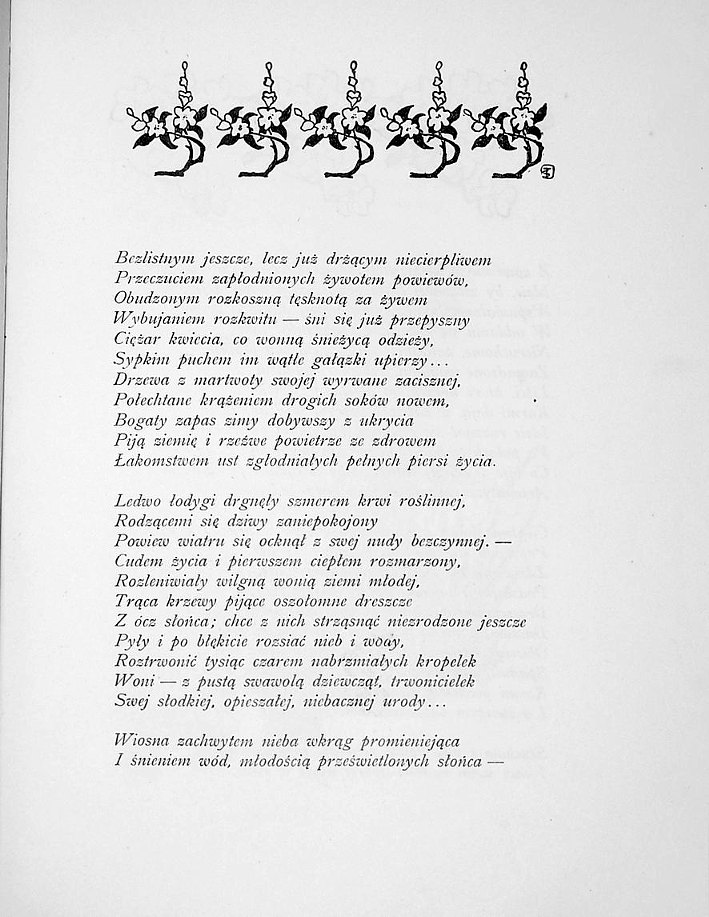 Bezlistnym jeszcze, lecz już drżącym niecierpliwem
Przeczuciem zapłodnionych żywotem powiewów,
Obudzonym rozkoszną tęsknotą za żywem
Wybujaniem rozkwitu — śni się już przepyszny
Ciężar kwiecia, co wonną śnieżycą odzieży,
Sypkim puchem im wątłe gałązki upierzy...
Drzewa z martwoty swojej wyrwane zacisznej,
Połechtane krążeniem drogich soków nowem,
Bogaty zapas zimy dobywszy z ukrycia
Piją ziemię i rzeźwe powietrze ze zdrowem
Łakomstwem ust zgłodniałych pełnych piersi życia.
Ledwo łodygi drgnęły szmerem krwi roślinnej,
Rodzącemi się dziwy zaniepokojony
Powiew wiatru się ocknął z swej nudy bezczynnej. —
Cudem życia i pierwszem ciepłem rozmarzony,
Rozleniwiały wilgną wonią ziemi młodej,
Trąca krzewy pijące oszołomne dreszcze
Z ócz słońca; chce z nich strząsnąć niezrodzone jeszcze
Pyły i po błękicie rozsiać nieb i wody,
Roztrwonić tysiąc czarem nabrzmiałych kropelek
Woni — z pustą swawolą dziewcząt, trwonicielek
Swej słodkiej, opieszałej, niebacznej urody...
Wiosna zachwytem nieba wkrąg promieniejąca
I śnieniem wód, młodością prześwietlonych słońca —